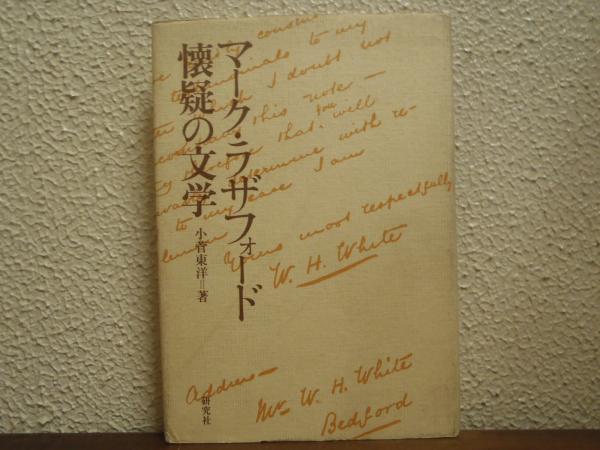 マーク・ラザフォード
懐疑の文学
小菅東洋=著
to my
I doubt not
this note —
that you well
with re-
to my
I am
Yours most respectfully
W. H. White
Address —
Mr W. H. White
Bedford
研究社